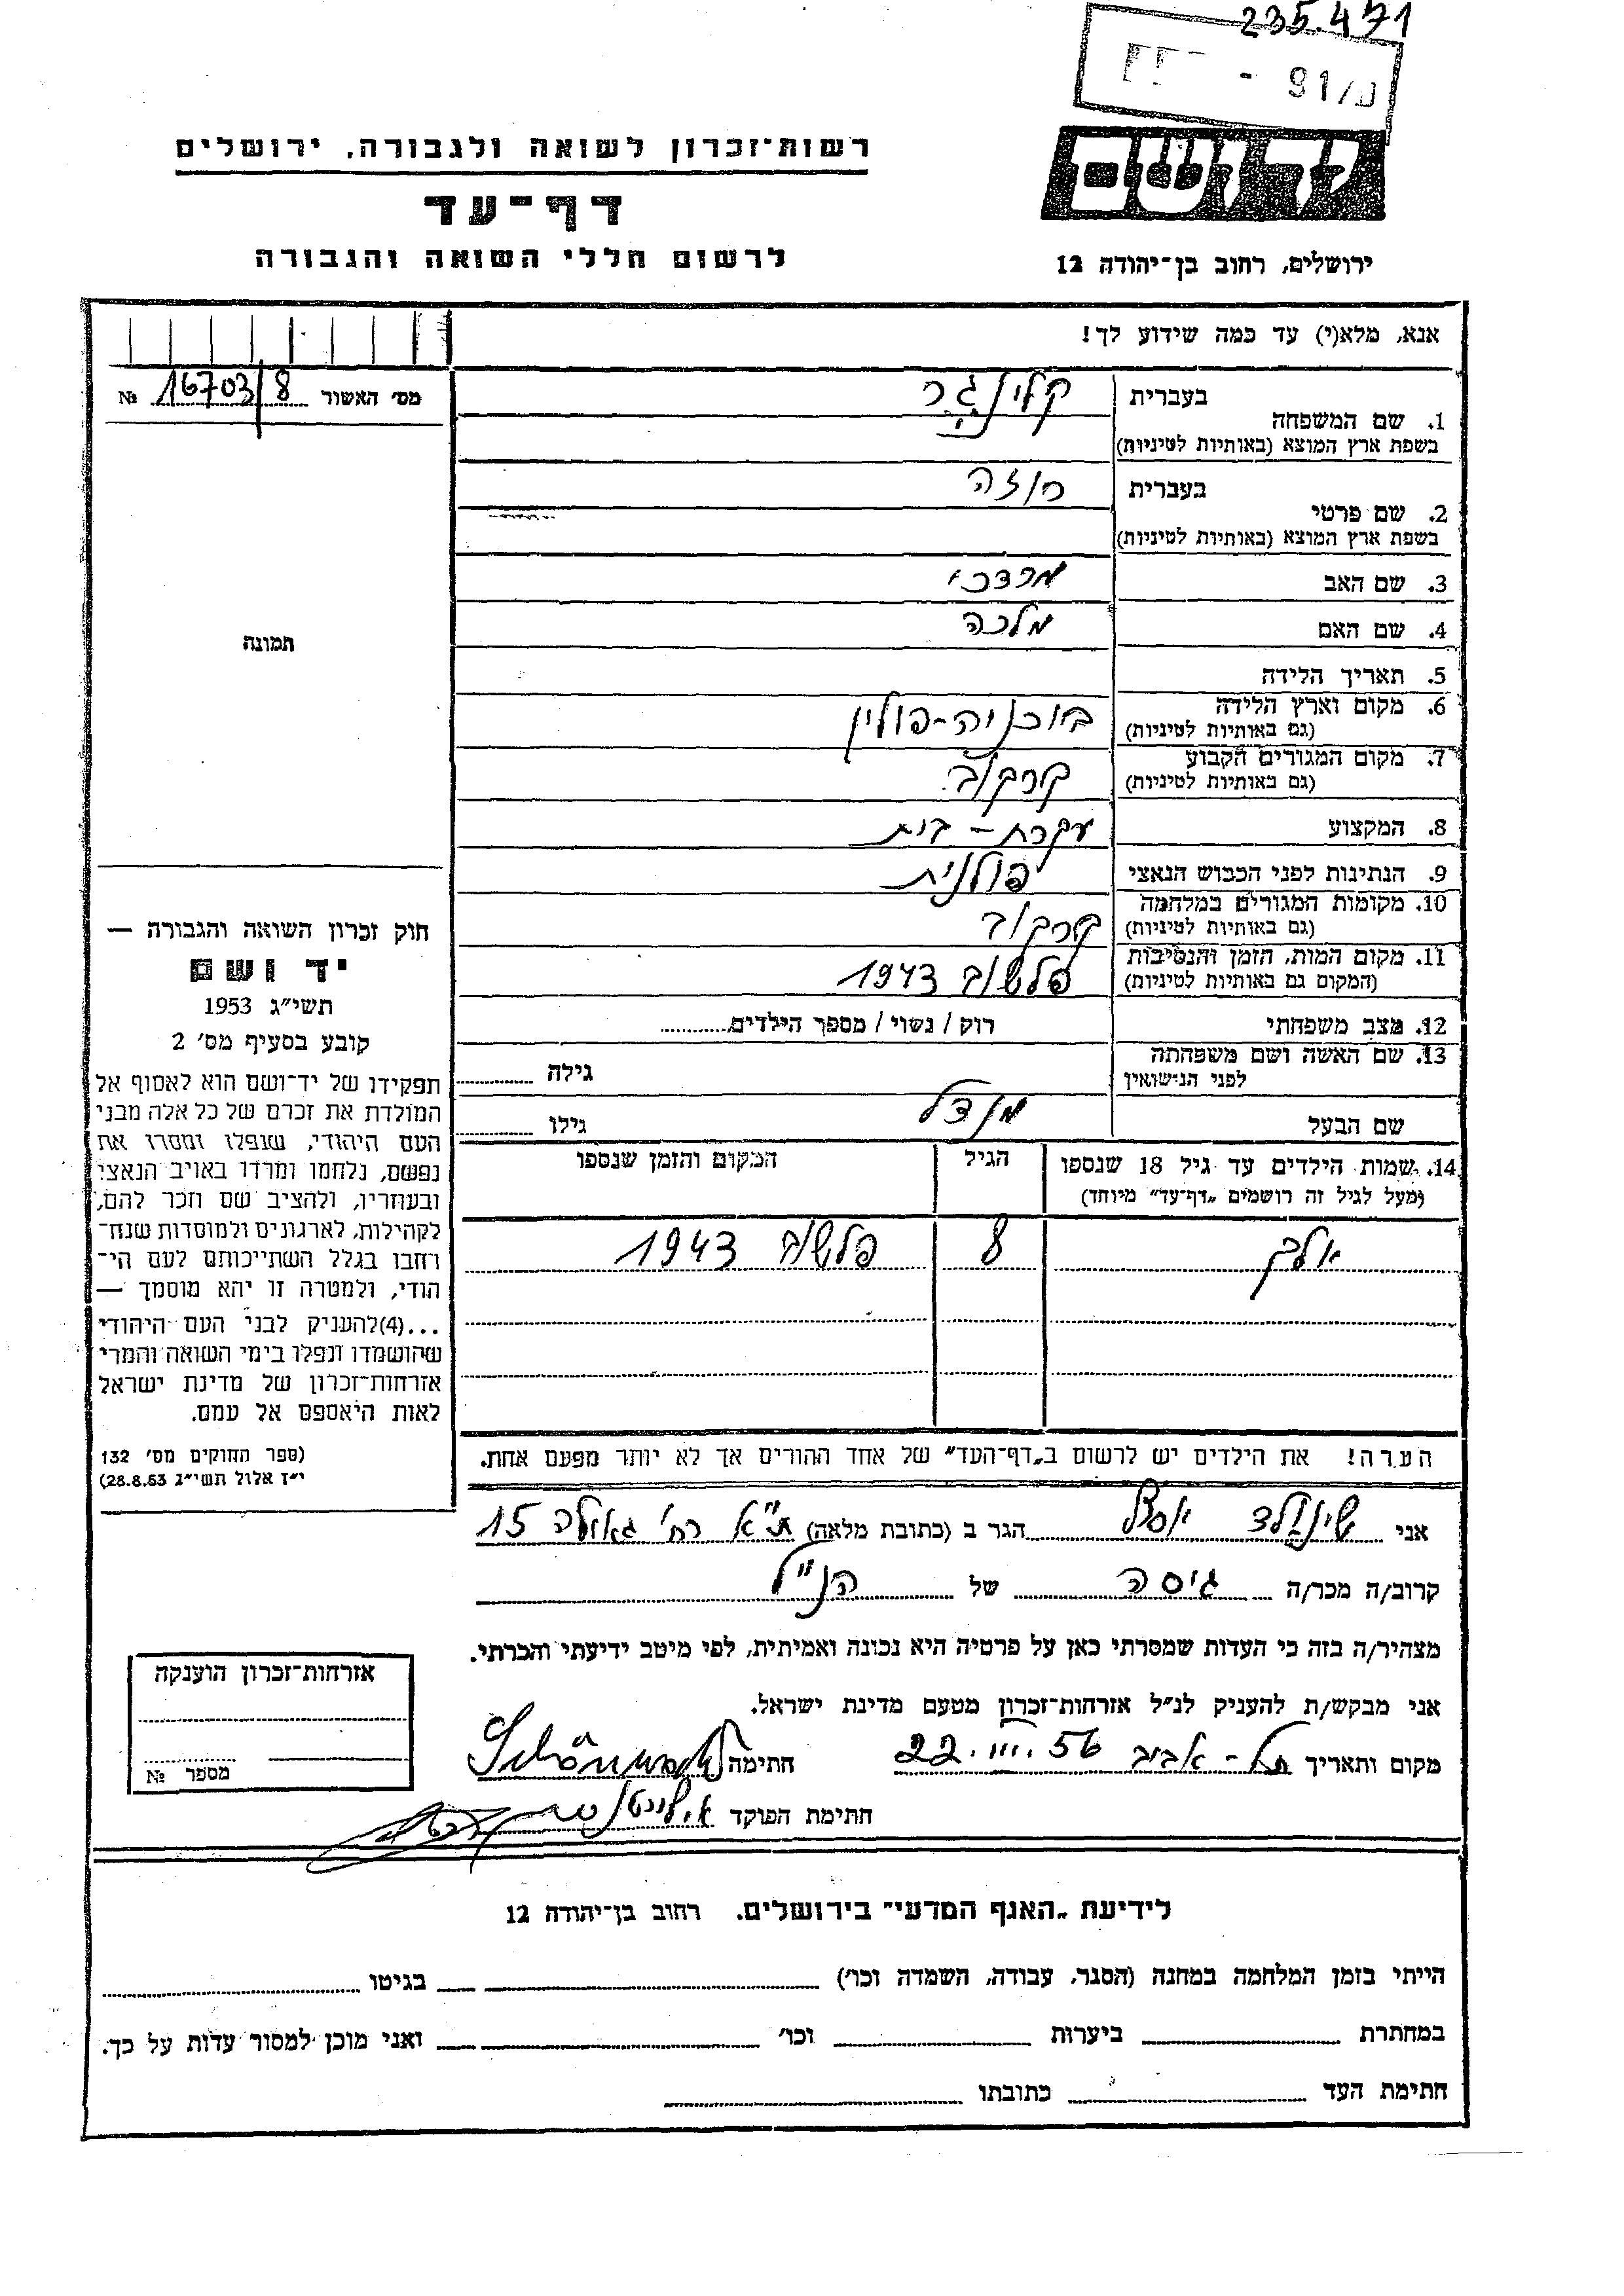 235.471
רשות־זכרון לשואה ולגבורה, ירושלים
דף־עד
לרשום חללי השואה והגבורה
ירושלים, רחוב בן־יהודה 12
אנא, מלא(י) עד כמה שידוע לך!
מס׳ האשור 16703/8 №
1. שם המשפחה בעברית קלינגר
בשפת ארץ המוצא (באותיות לטיניות)
2. שם פרטי בעברית רוזה
בשפת ארץ המוצא (באותיות לטיניות)
3. שם האב מרדכי
4. שם האם מלכה
תמונה
5. תאריך הלידה
6. מקום וארץ הלידה בוכניה-פולין
(גם באותיות לטיניות)
7. מקום המגורים הקבוע קרקוב
(גם באותיות לטיניות)
8. המקצוע עקרת-בית
9. הנתינות לפני הכבוש הנאצי פולנית
10. מקומות המגורים במלחמה קרקוב
(גם באותיות לטיניות)
11. מקום המות, הזמן והנסיבות פלשוב 1943
(המקום גם באותיות לטיניות)
12. מצב משפחתי רוק / נשוי / מספר הילדים
13. שם האשה ושם משפחתה
לפני הנישואין גילה
שם הבעל מנדל גילו
14. שמות הילדים עד גיל 18 שנספו הגיל המקום והזמן שנספו
(מעל לגיל זה רושמים „דף־עד” מיוחד)
אלק 8 פלשוב 1943
חוק זכרון השואה והגבורה —
יד ושם
תשי״ג 1953
קובע בסעיף מס׳ 2
תפקידו של יד־ושם הוא לאסוף אל
המולדת את זכרם של כל אלה מבני
העם היהודי, שנפלו ומסרו את
נפשם, נלחמו ומרדו באויב הנאצי
ובעוזריו, ולהציב שם וזכר להם,
לקהילות, לארגונים ולמוסדות שנח־
רחבו בגלל השתייכותם לעם הי־
הודי, ולמטרה זו יהא מוסמך —
...(4)להעניק לבני העם היהודי
שהושמדו ונפלו בימי השואה והמרי
אזרחות־זכרון של מדינת ישראל
לאות היאספם אל עמם.
(ספר החוקים מס׳ 132
י״ז אלול תשי״ג 28.8.53)
הערה! את הילדים יש לרשום ב„דף־העד” של אחד ההורים אך לא יותר מפעם אחת.
אני שינולד הגר ב (כתובת מלאה) ת״א רח׳ גאולה 15
קרוב/ה מכר/ה גיסה של הנ״ל
מצהיר/ה בזה כי העדות שמסרתי כאן על פרטיה היא נכונה ואמיתית, לפי מיטב ידיעתי והכרתי.
אני מבקש/ת להעניק לנ״ל אזרחות־זכרון מטעם מדינת ישראל.
מקום ותאריך תל-אביב 22.III.56 חתימה
חתימת הפוקד
אזרחות־זכרון הוענקה
מספר №
לידיעת „האגף המדעי” בירושלים, רחוב בן־יהודה 12
הייתי בזמן המלחמה במחנה (הסגר, עבודה, השמדה וכו׳) בגיטו
במחתרת ביערות וכו׳ ואני מוכן למסור עדות על כך.
חתימת העד כתובתו